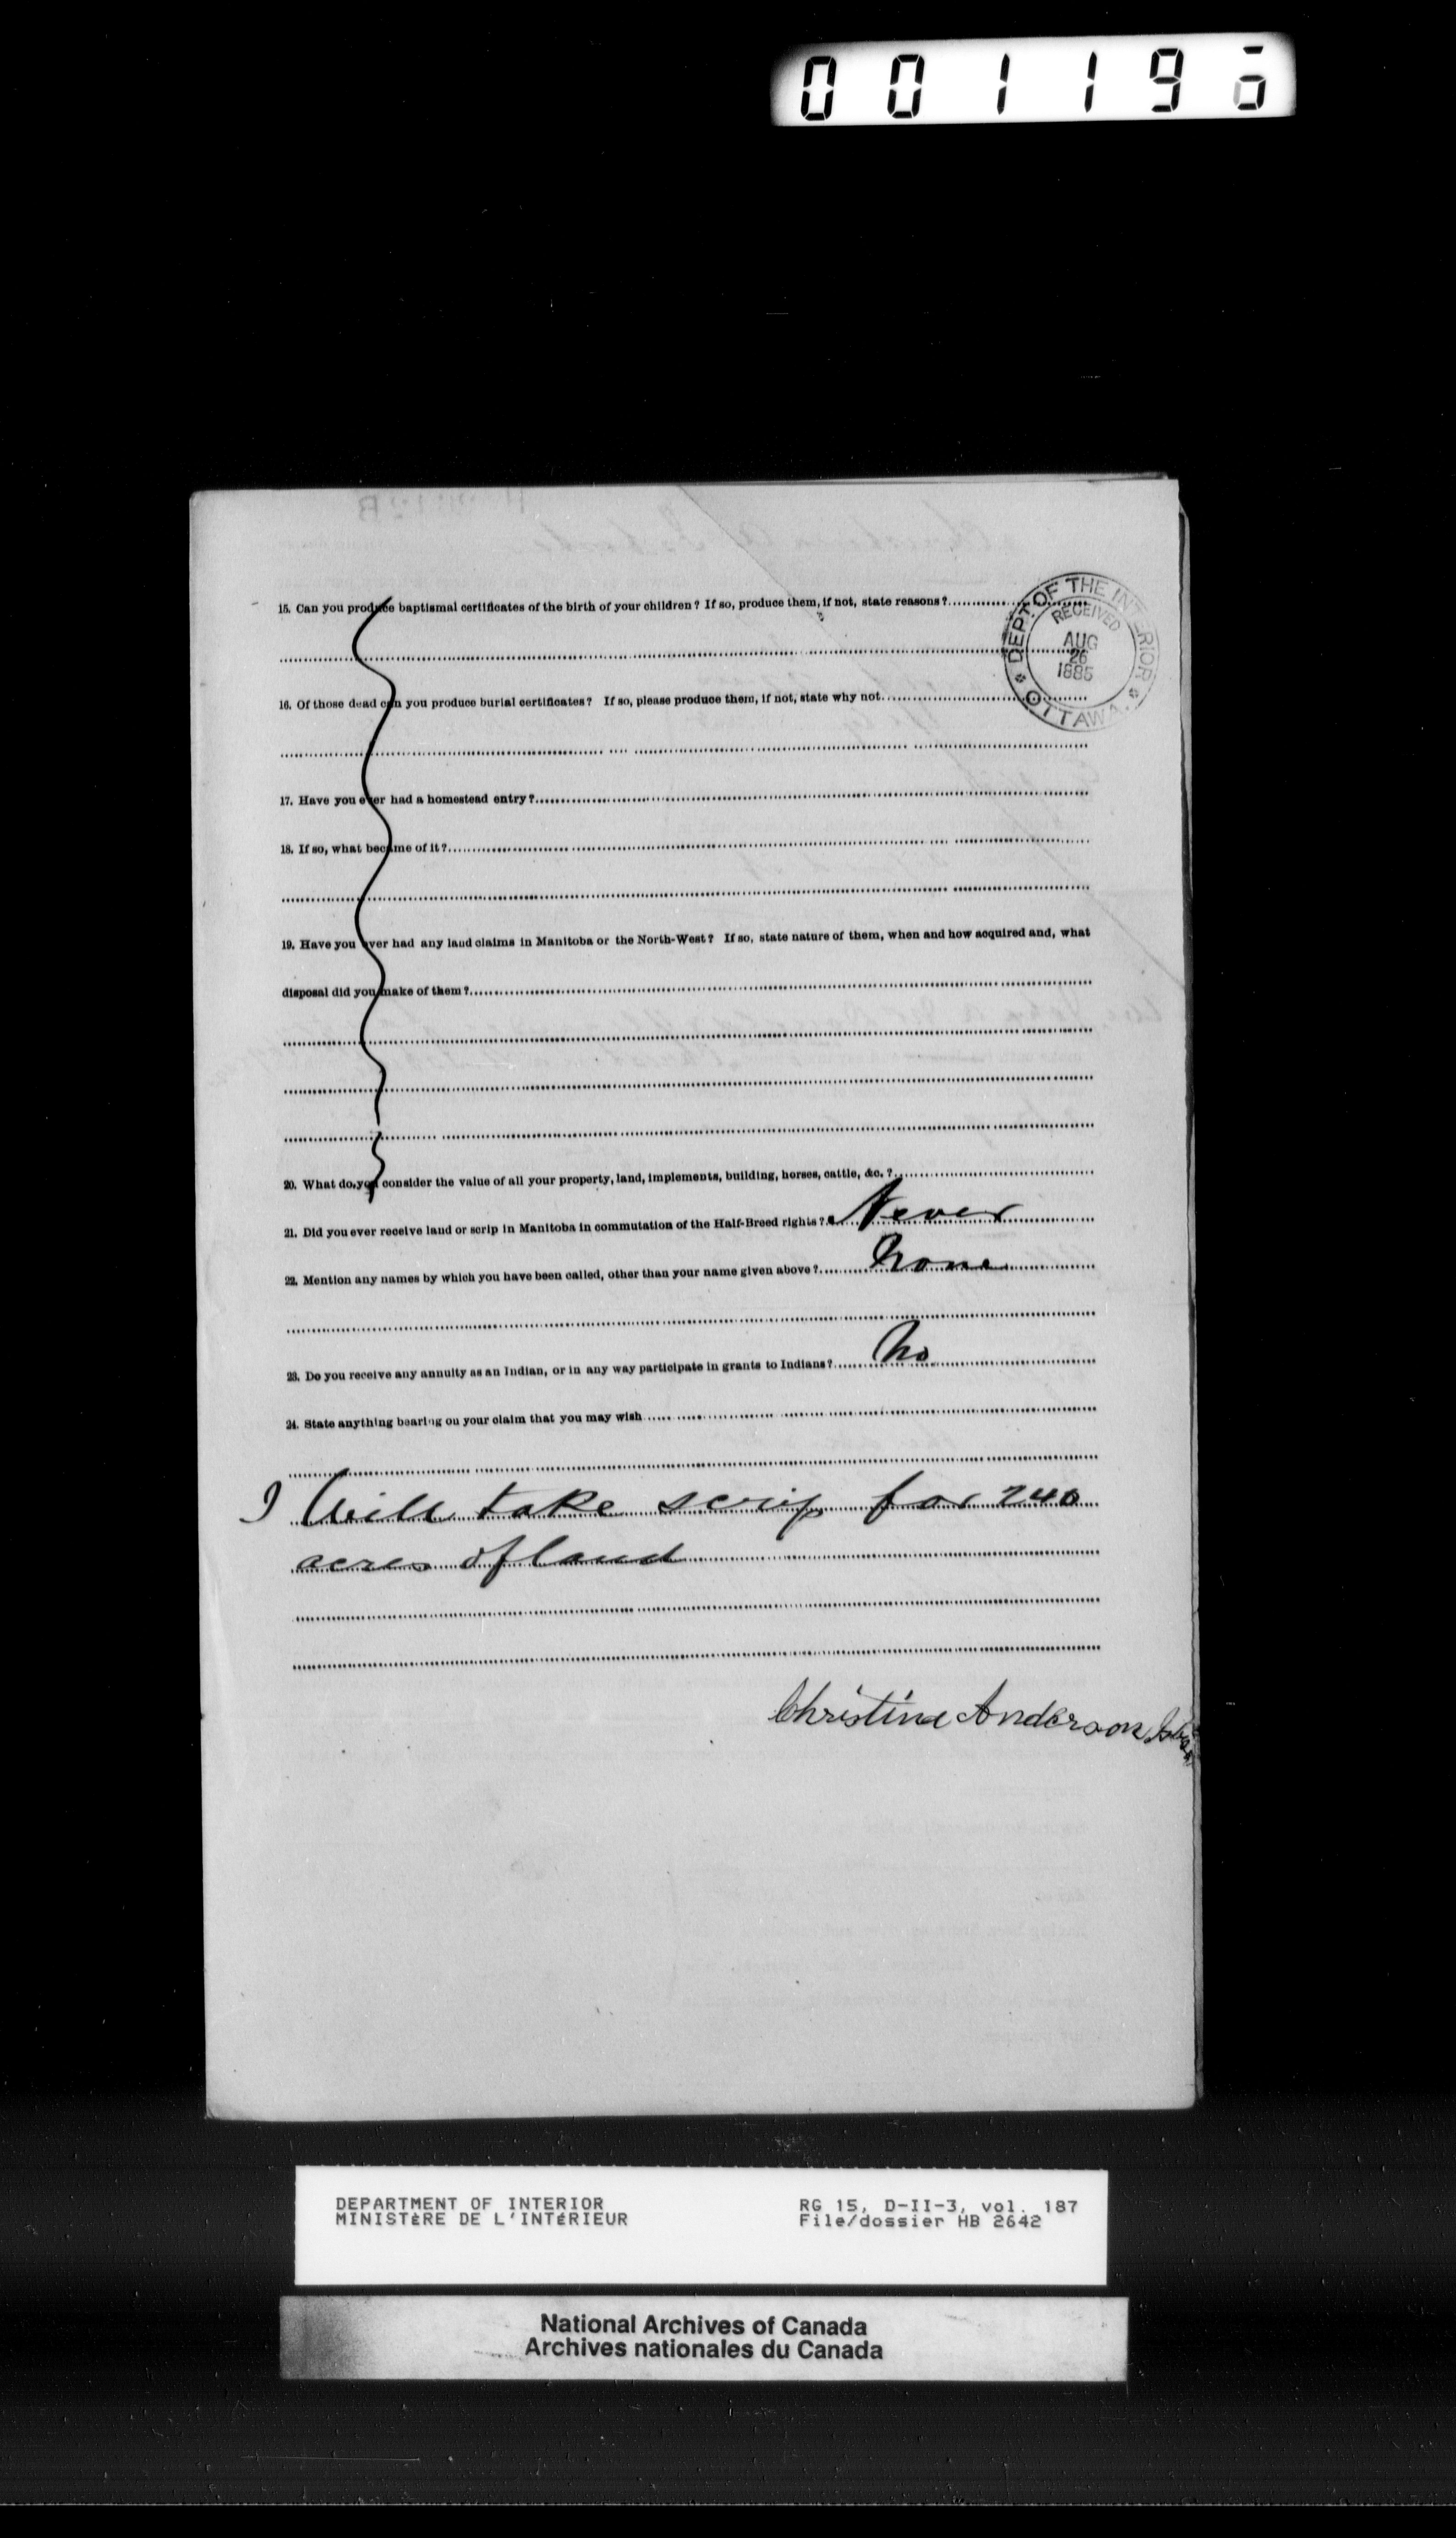 0 0 1 1 9
15. Can you produce baptismal certificates of the birth of your children? If so, produce them, if not, state reasons?
DEPT. OF THE INTERIOR
RECEIVED
AUG
26
1885
OTTAWA.
16. Of those dead can you produce burial certificates? If so, please produce them, if not, state why not
17. Have you ever had a homestead entry?
18. If so, what became of it?
19. Have you ever had any land claims in Manitoba or the North-West? If so, state nature of them, when and how acquired and, what
disposal did you make of them?
20. What do you consider the value of all your property, land, implements, building, horses, cattle, &c.?
21. Did you ever receive land or scrip in Manitoba in commutation of the Half-Breed rights? Never
22. Mention any names by which you have been called, other than your name given above? None
23. Do you receive any annuity as an Indian, or in any way participate in grants to Indians? No
24. State anything bearing on your claim that you may wish
I Will take scrip for 240
acres of land
Christine Anderson
DEPARTMENT OF INTERIOR
MINISTÈRE DE L'INTÉRIEUR
RG 15, D-II-3, vol. 187
File/dossier HB 2642
National Archives of Canada
Archives nationales du Canada